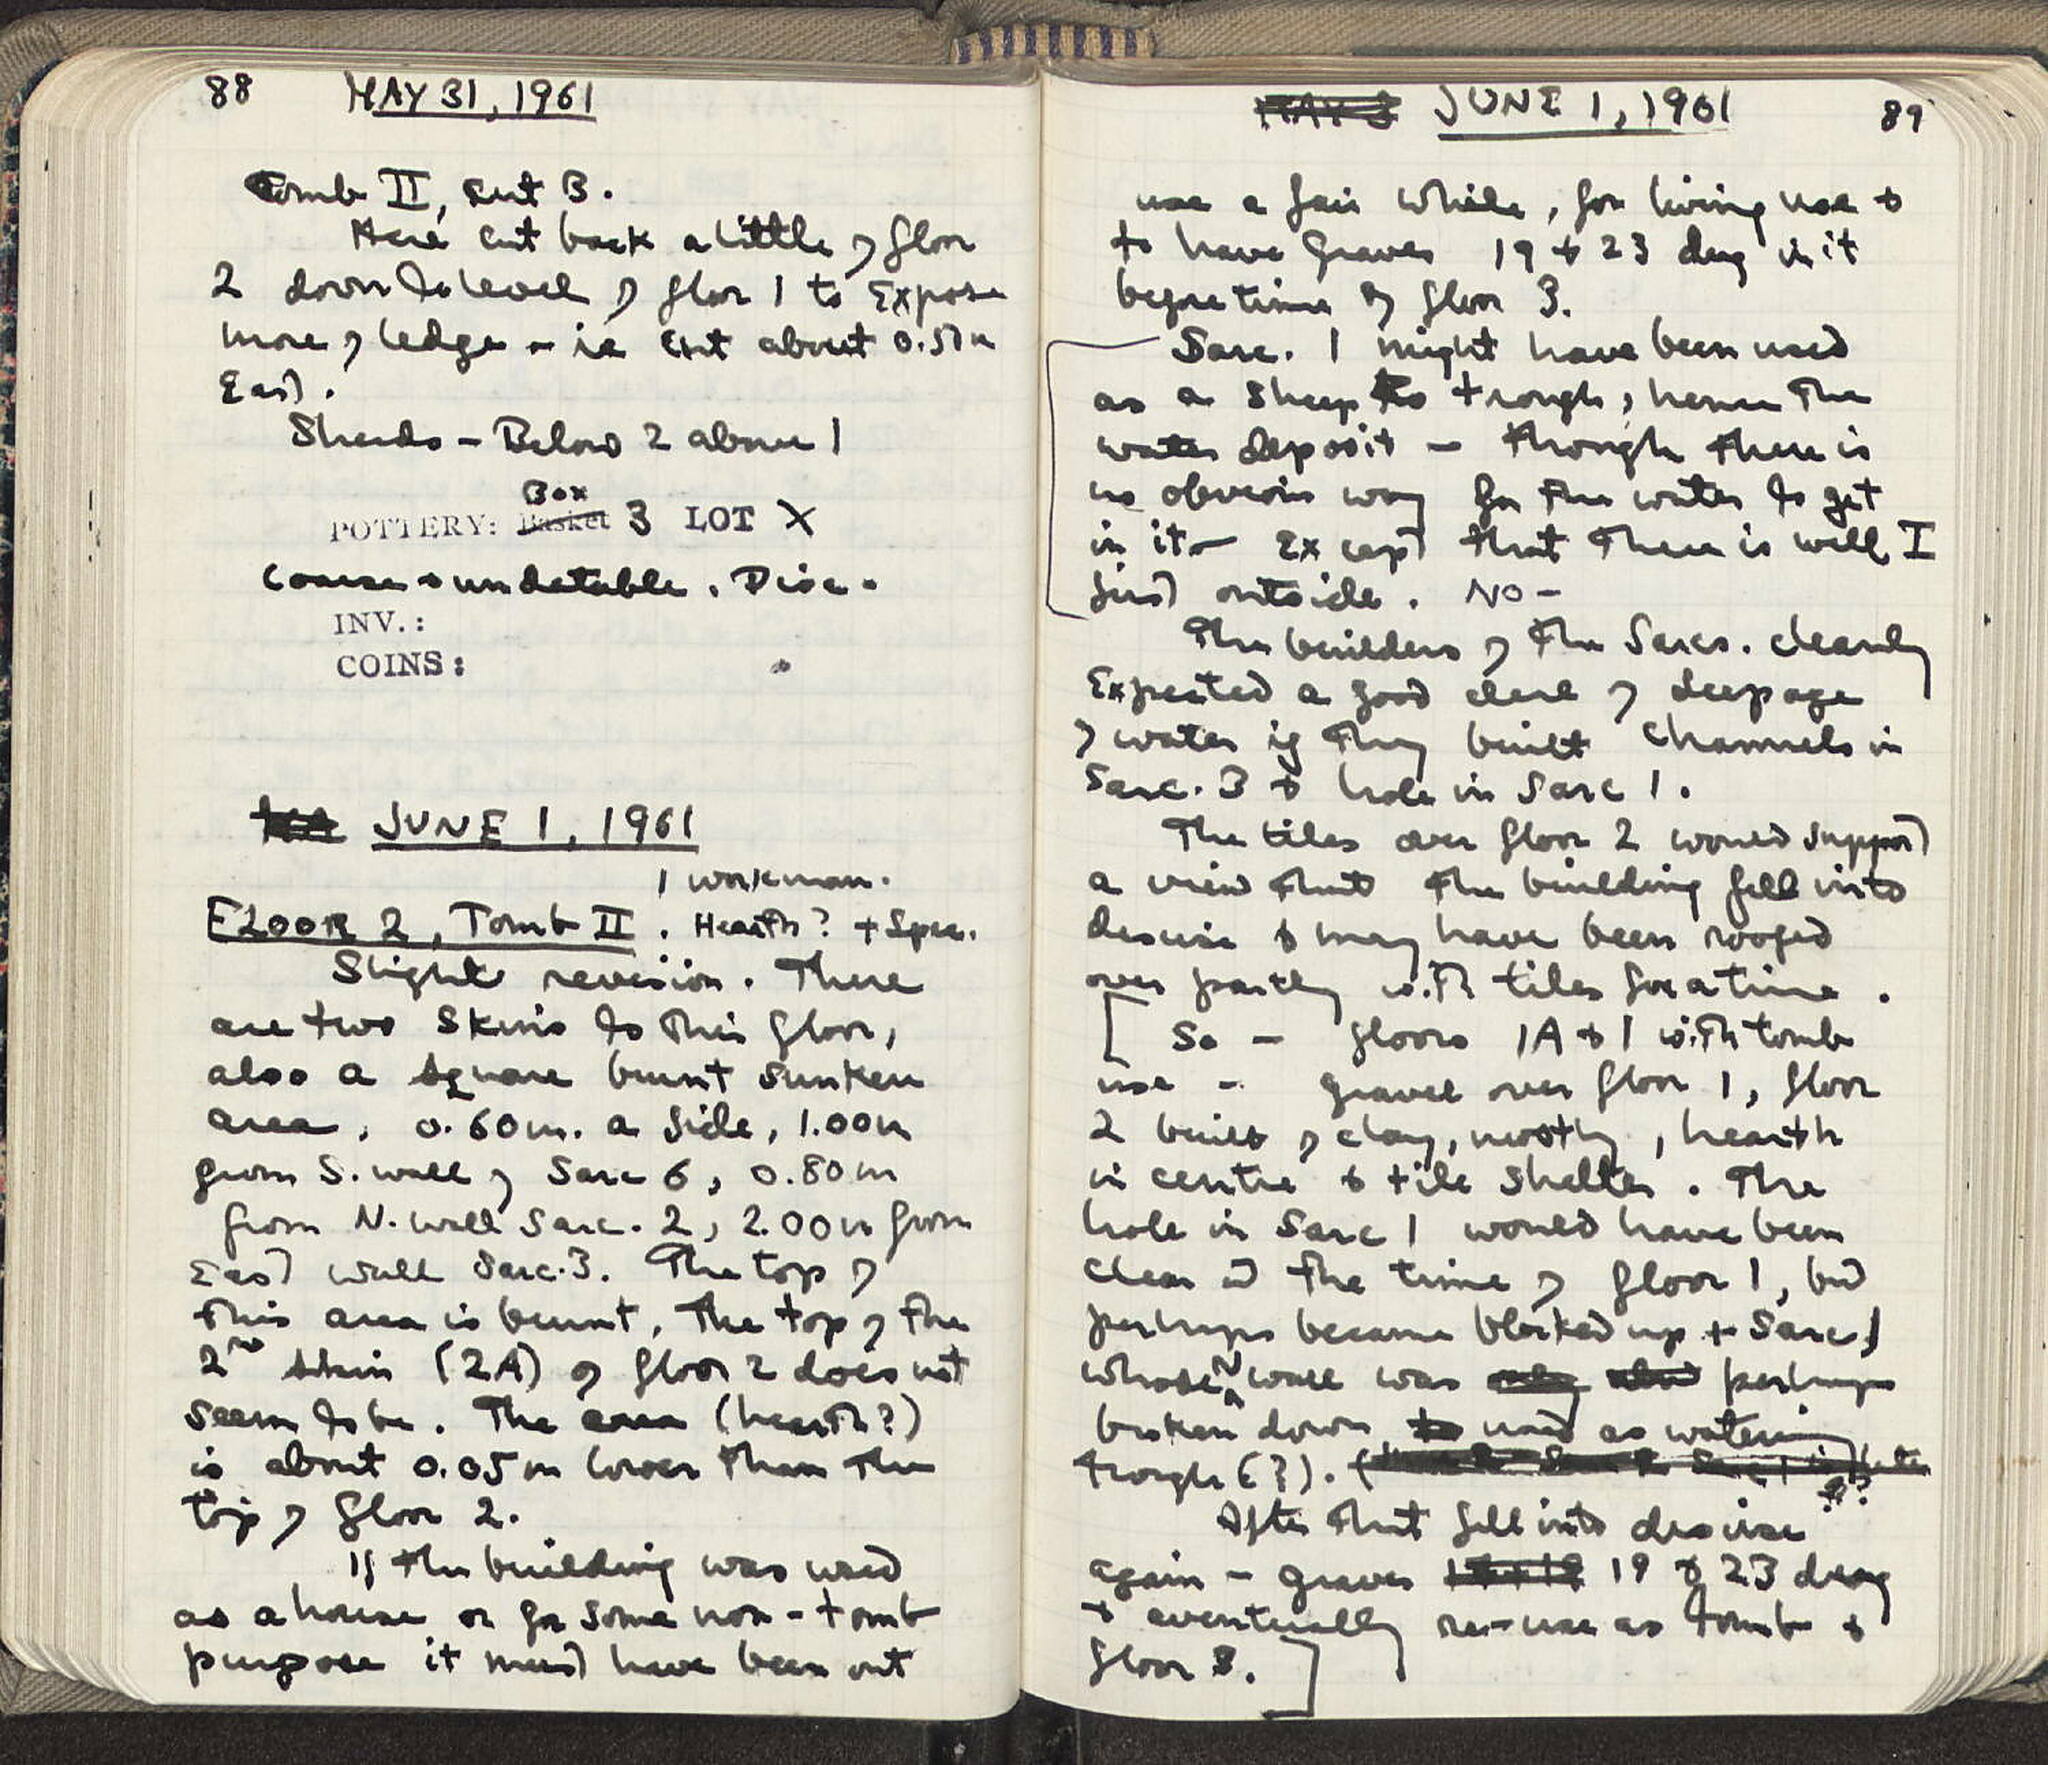 88 MAY 31, 1961
Tomb II, cut B.
Here cut back a little of floor
2 down to level of floor 1 to expose
more of ledge - ie cut about 0.50m
East.
Sherds - Below 2 above 1
Box
POTTERY: Basket 3 LOT X
Coarse + undatable. Disc.
INV.:
COINS:
JUNE 1, 1961
1 workman.
FLOOR 2, Tomb II. Hearth? + Spec.
Slight revision. There
are two skins to this floor,
also a square burnt sunken
area, 0.60m. a side, 1.00m
from S. wall of Sarc 6, 0.80m
from N. wall Sarc. 2, 2.00m from
East wall Sarc. 3. The top of
this area is burnt, The top of the
2nd skin (2A) of floor 2 does not
seem to be. The area (hearth?)
is about 0.05m lower than the
top of floor 2.
If the building was used
as a house or for some non-tomb
purpose it must have been out
MAY 3 JUNE 1, 1961 89
use a fair while, for living use +
to have graves 19 + 23 dug in it
before time of floor 3.
Sarc. 1 might have been used
as a sheep trough, hence the
water deposit - though there is
no obvious way for the water to get
in it - except that there is well I
just outside. NO -
The builders of the Sarcs. clearly
expected a good deal of seepage
of water if they built channels in
Sarc. 3 + hole in Sarc 1.
The tiles over floor 2 would support
a view that the building fell into
disuse + may have been roofed
over partly with tiles for a time.
[So - floors 1A + 1 with tomb
use - gravel over floor 1, floor
2 built of clay, mostly, hearth
in centre + tile shelter. The
hole in Sarc 1 would have been
clear at the time of floor 1, but
perhaps became blocked up + Sarc 1
whose N wall was perhaps
broken down used as watering
trough (?). (
??
After that fell into disuse
again - graves 19 + 23 dug
+ eventually re-use as tomb +
floor 3.]